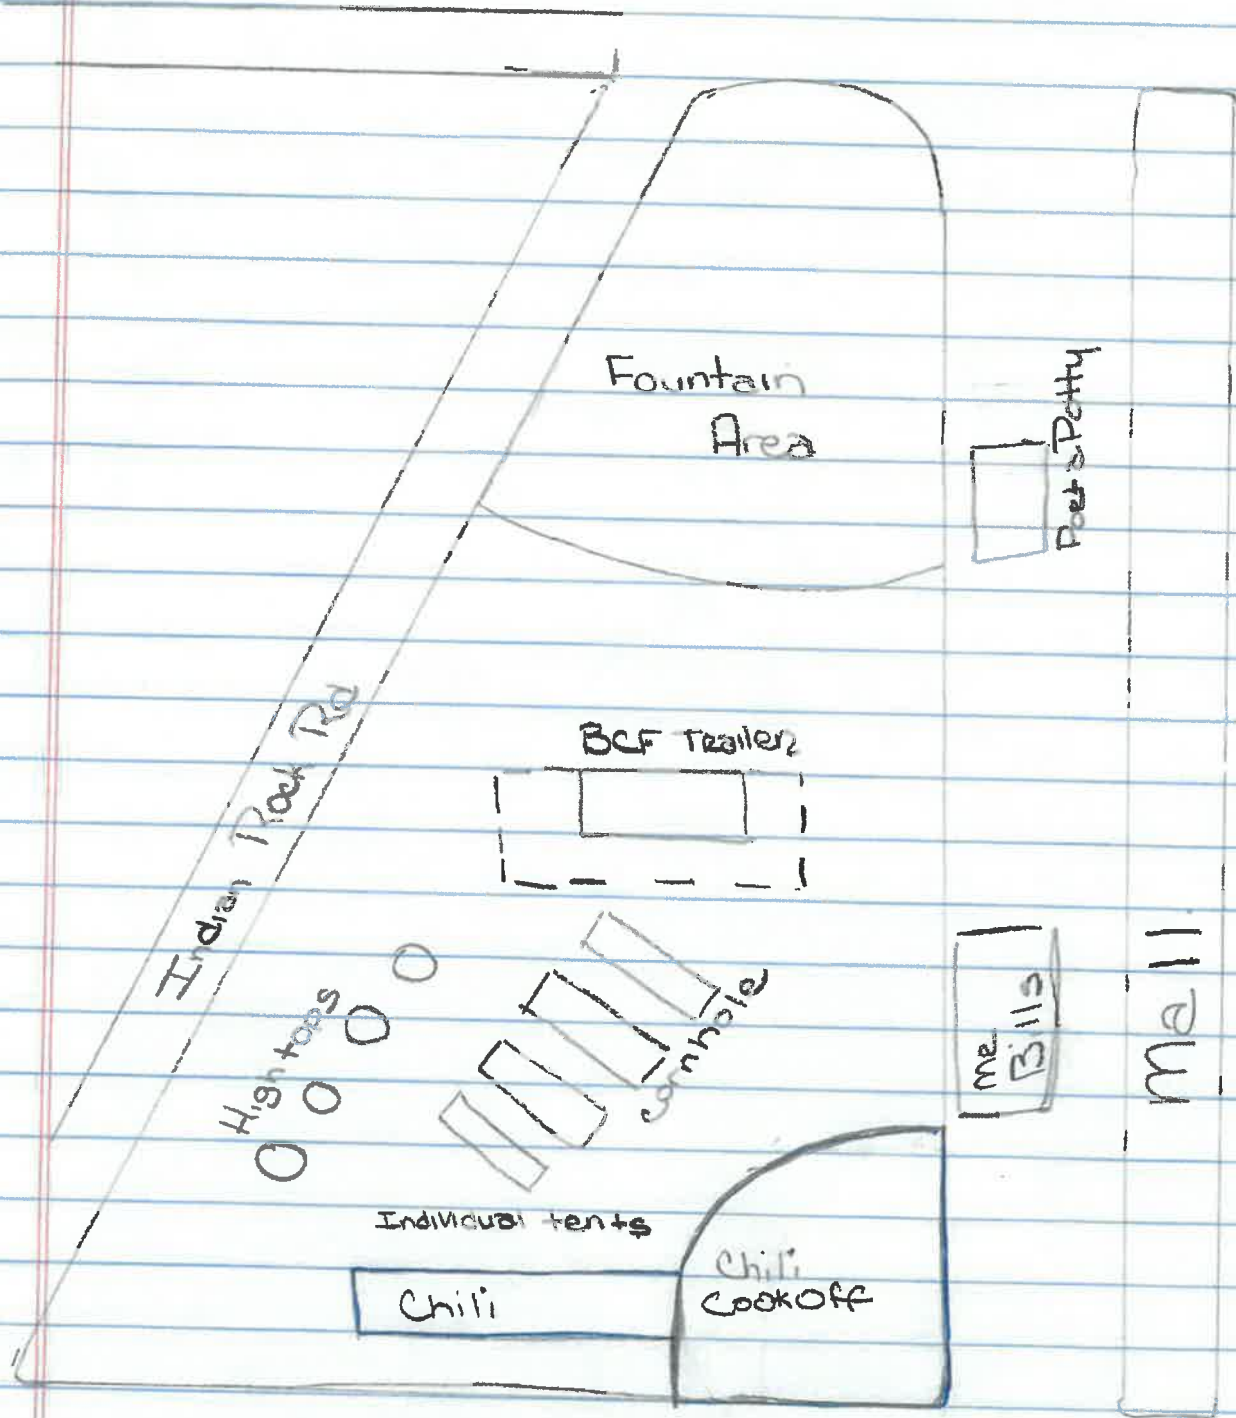 Fountain
Area
Port a Potty
BCF Trailer
Indian Rock Rd
Hightops
Cornhole
me
Bills
mall
Individual tents
Chili
Chili
CookOff